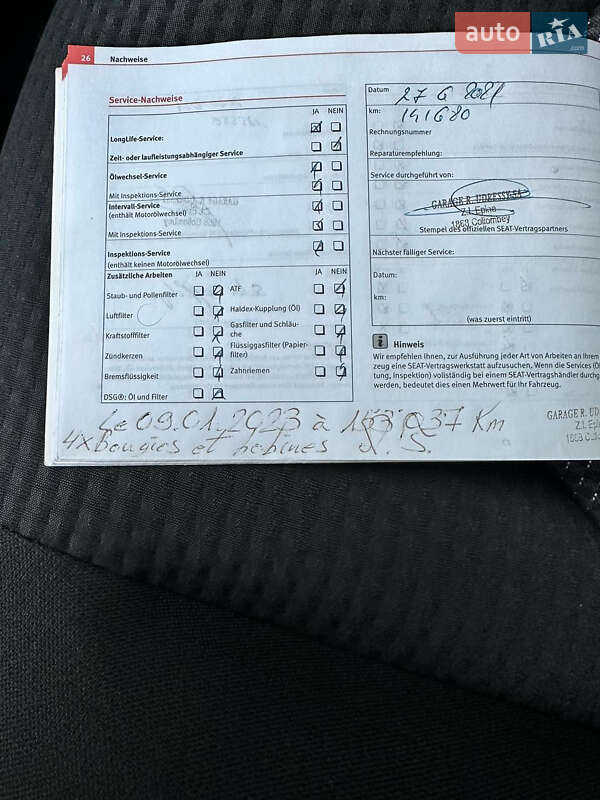 auto RIA .com
26 Nachweise
Service-Nachweise
JA NEIN
LongLife-Service:
Zeit- oder laufleistungsabhängiger Service
Ölwechsel-Service
Mit Inspektions-Service
Intervall-Service
(enthält Motorölwechsel)
Mit Inspektions-Service
Inspektions-Service
(enthält keinen Motorölwechsel)
Zusätzliche Arbeiten JA NEIN JA NEIN
Staub- und Pollenfilter
Luftfilter
Kraftstofffilter
Zündkerzen
Bremsflüssigkeit
DSG®: Öl und Filter
ATF
Haldex-Kupplung (Öl)
Gasfilter und Schläu-
che
Flüssiggasfilter (Papier-
filter)
Zahnriemen
Datum 27 6 2021
km: 141680
Rechnungsnummer
Reparaturempfehlung:
Service durchgeführt von:
GARAGE R. UDRESSY SA
Z.I. Epine
1868 Collombey
Stempel des offiziellen SEAT-Vertragspartners
Nächster fälliger Service:
Datum:
km:
(was zuerst eintritt)
Hinweis
Wir empfehlen Ihnen, zur Ausführung jeder Art von Arbeiten an Ihrem
zeug eine SEAT-Vertragswerkstatt aufzusuchen. Wenn die Services (Öl
tung, Inspektion) vollständig bei einem SEAT-Vertragshändler durchg
werden, bedeutet dies einen Mehrwert für Ihr Fahrzeug.
Le 09.01.2023 à 153 037 Km
4x Bougies et bobines
GARAGE R. UD
Z.I. Epi
1868 Coll